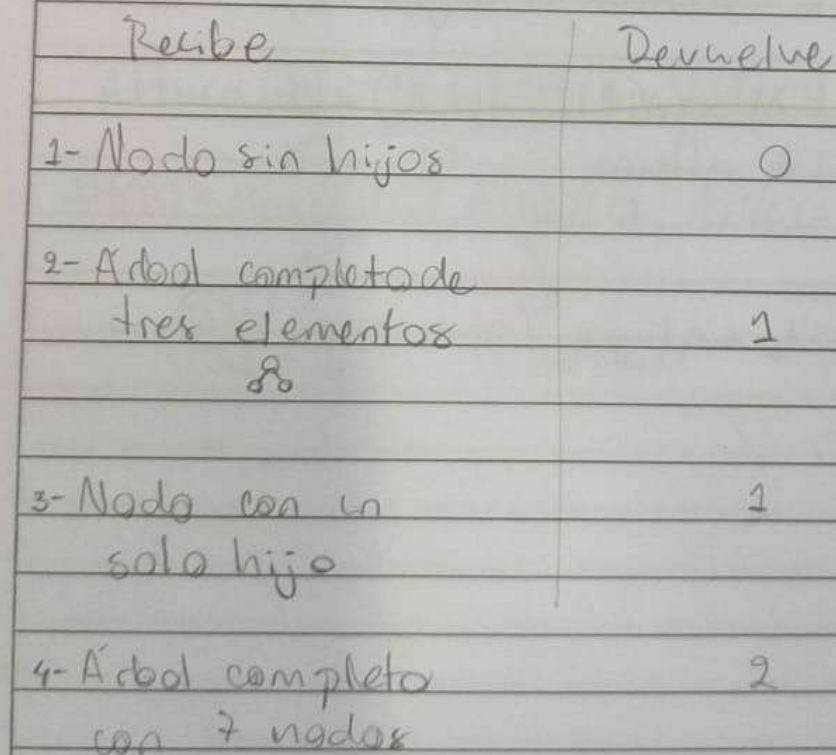 Recibe Devuelve
1- Nodo sin hijos 0
2- Árbol completo de
tres elementos 1
3- Nodo con un 1
solo hijo
4- Árbol completo 2
con 7 nodos